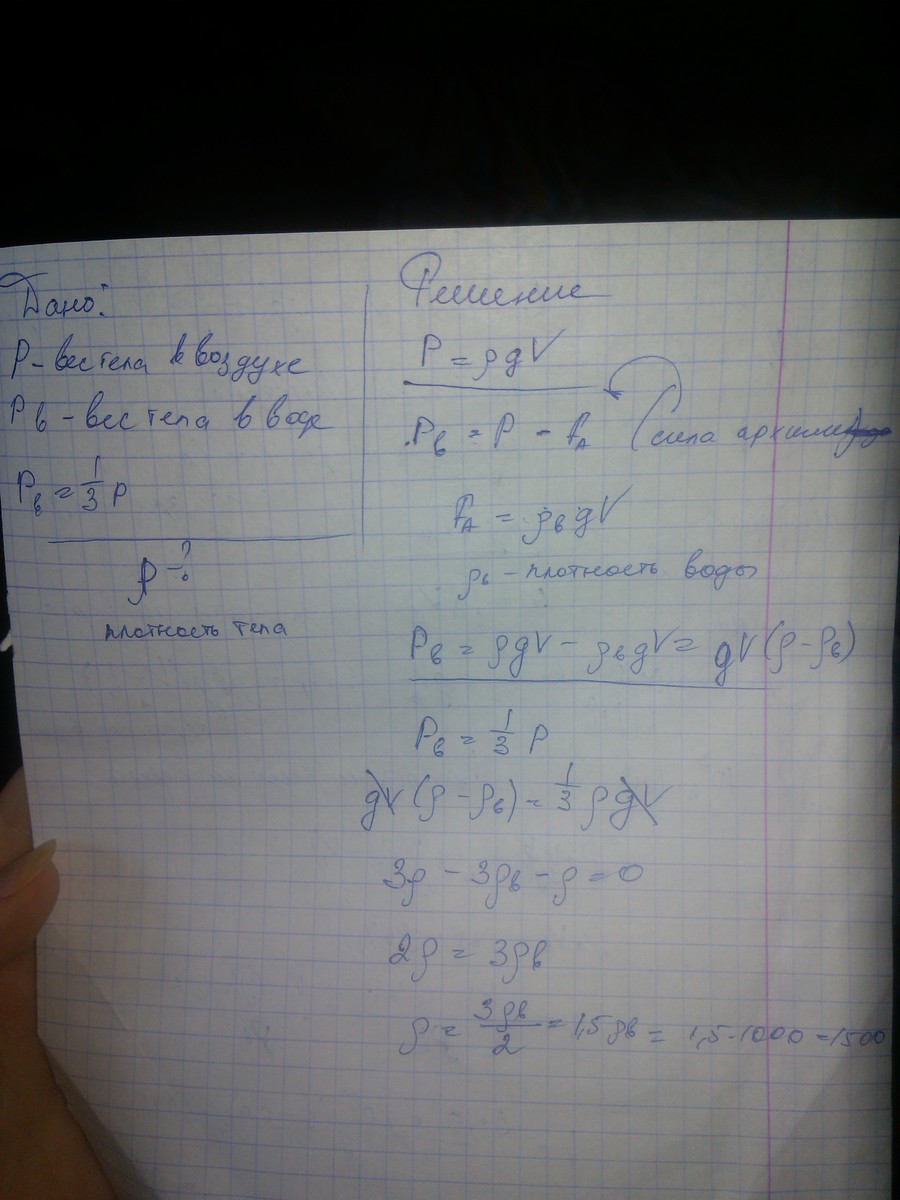 Дано:
P - вес тела в воздухе
Pв - вес тела в воде
Pв = 1/3 P
ρ - ?
плотность тела
Решение
P = ρgV
Pв = P - FA (сила архимеда)
FA = ρв gV
ρв - плотность воды
Pв = ρgV - ρв gV = gV(ρ - ρв)
Pв = 1/3 P
gV(ρ - ρв) = 1/3 ρgV
3ρ - 3ρв - ρ = 0
2ρ = 3ρв
ρ = 3ρв/2 = 1,5ρв = 1,5·1000 = 1500